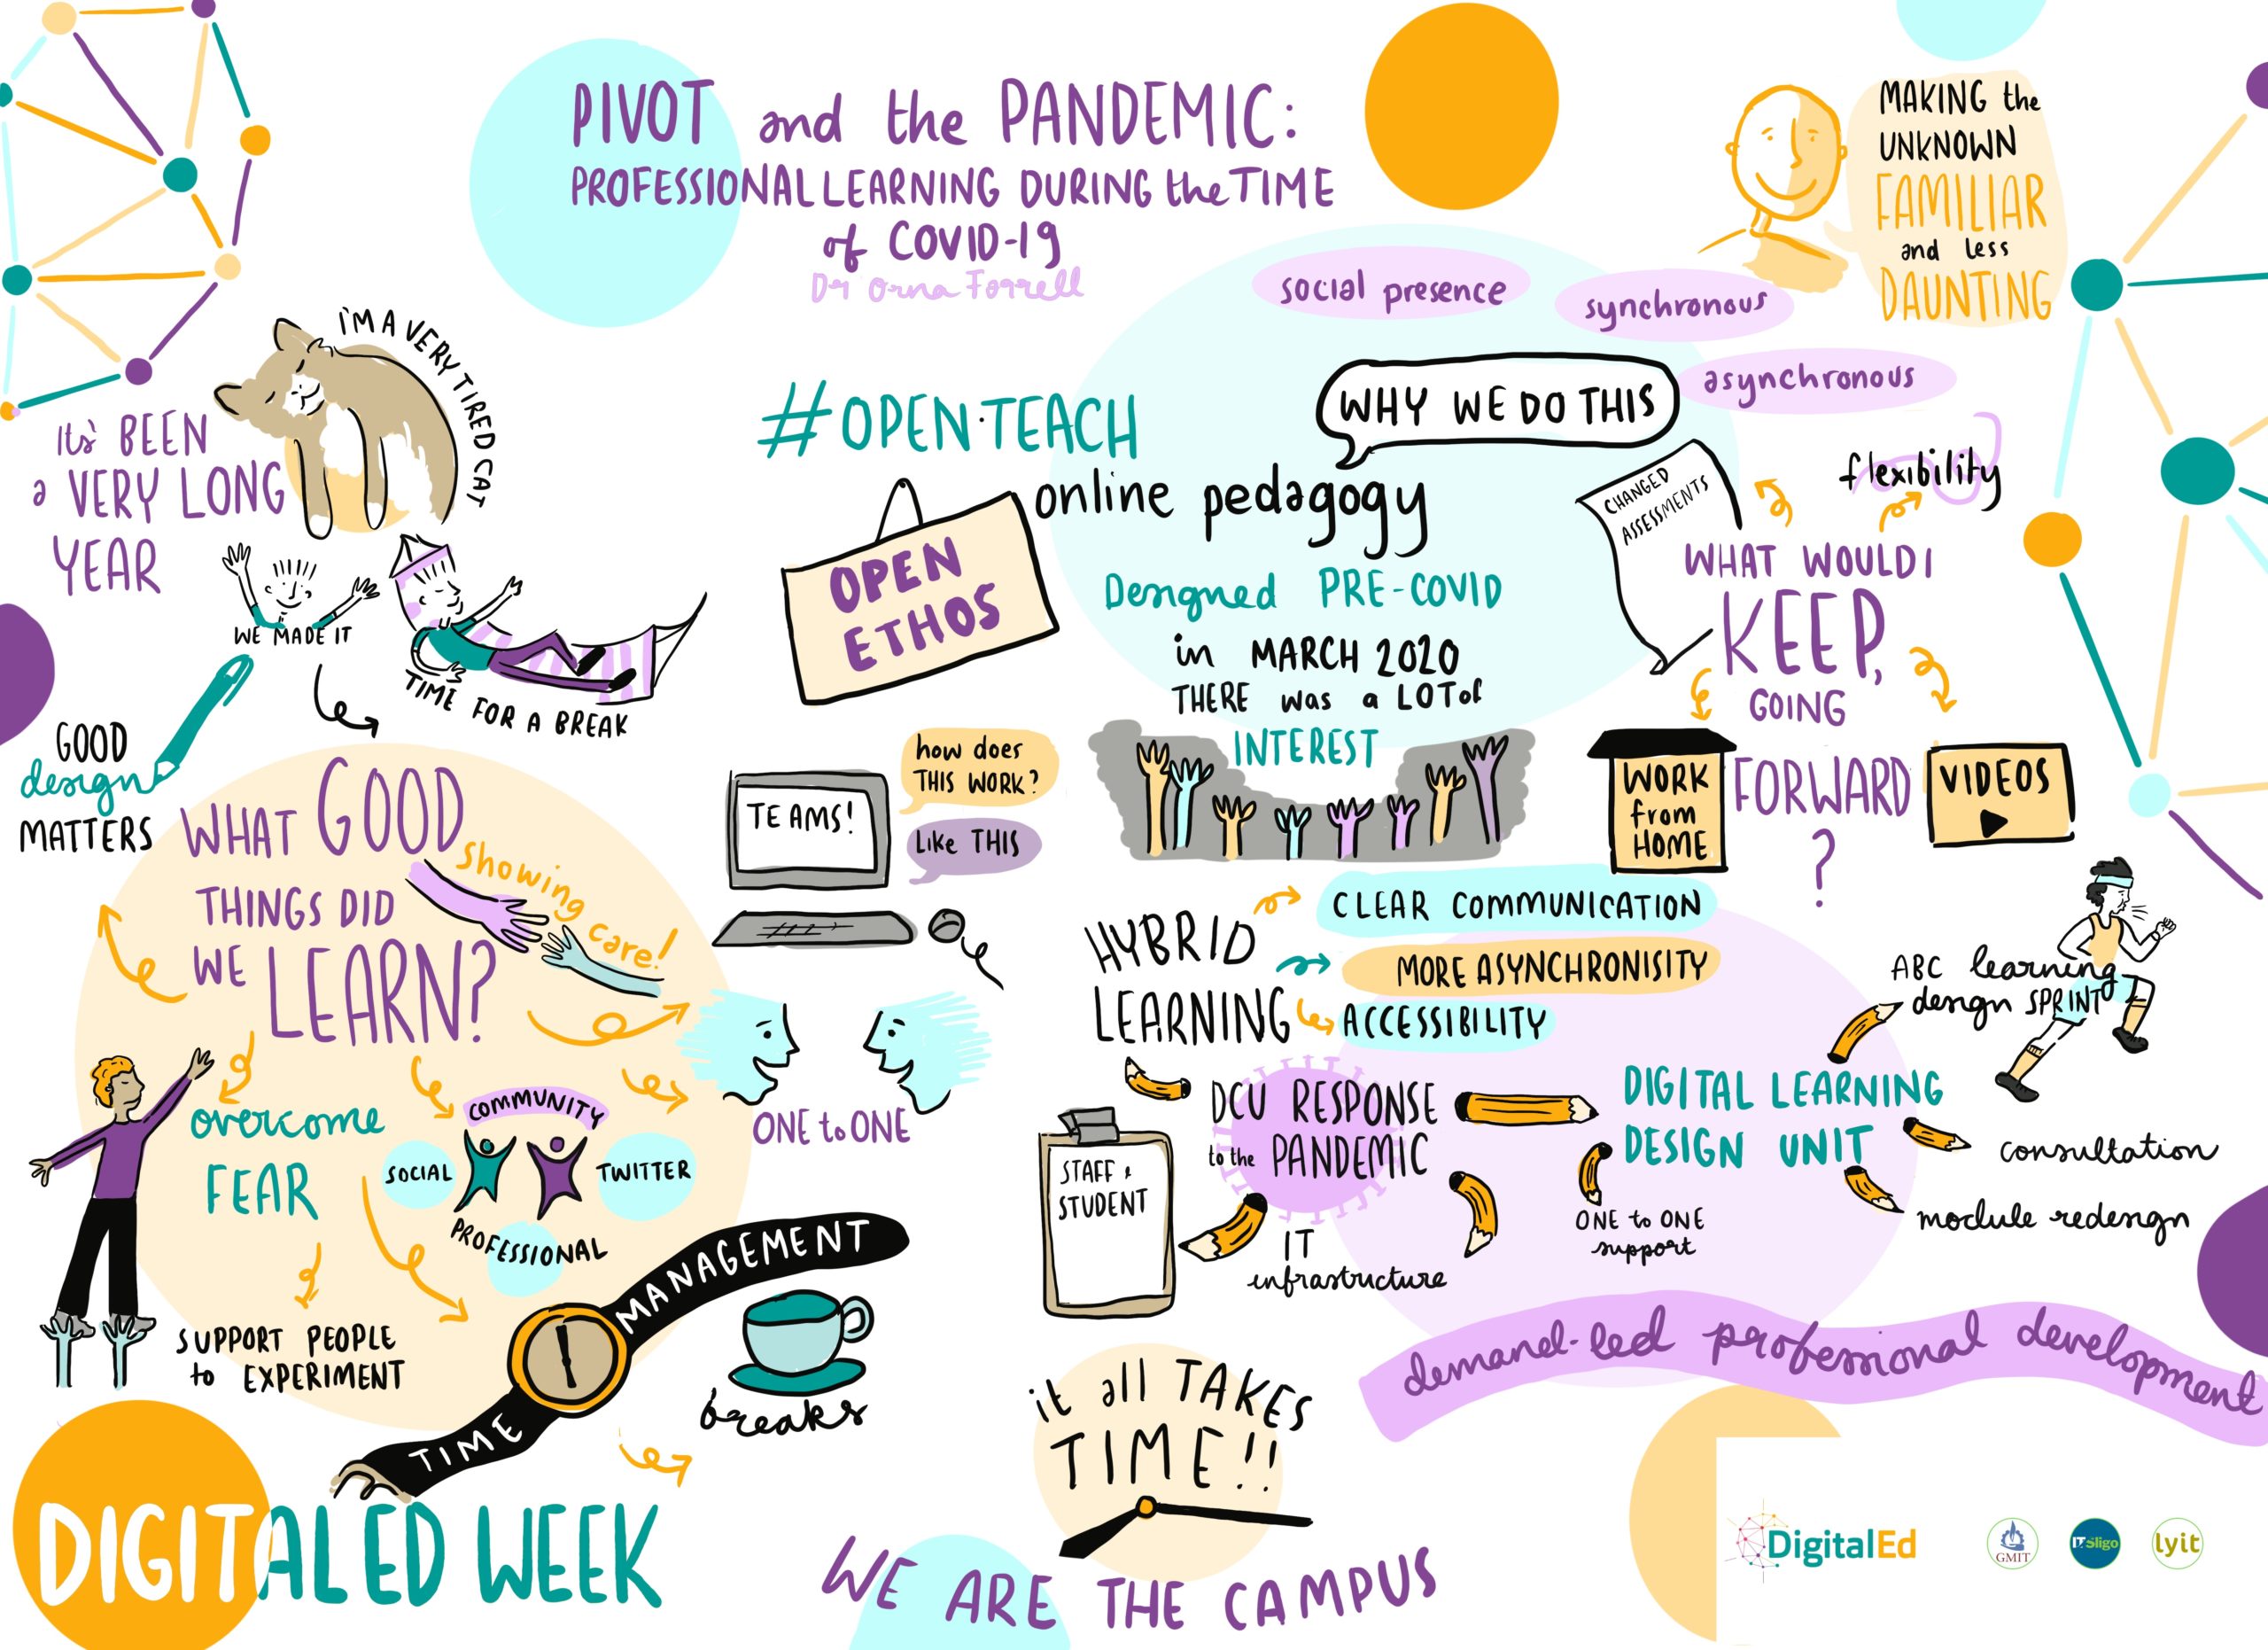 PIVOT and the PANDEMIC:
PROFESSIONAL LEARNING DURING the TIME
of COVID-19
Dr Orna Farrell
MAKING the
UNKNOWN
FAMILIAR
and less
DAUNTING
social presence
synchronous
asynchronous
I'M A VERY TIRED CAT
Its' BEEN
a VERY LONG
YEAR
WE MADE IT
TIME FOR A BREAK
#OPEN·TEACH
WHY WE DO THIS
online pedagogy
OPEN
ETHOS
Designed PRE-COVID
in MARCH 2020
THERE was a LOT of
INTEREST
CHANGED
ASSESSMENTS
flexibility
WHAT WOULD I
KEEP,
GOING
FORWARD
?
WORK
from
HOME
VIDEOS
GOOD
design
MATTERS
WHAT GOOD
THINGS DID
WE LEARN?
showing care!
TEAMS!
how does
THIS WORK?
Like THIS
ONE to ONE
overcome
FEAR
COMMUNITY
SOCIAL
TWITTER
PROFESSIONAL
SUPPORT PEOPLE
to EXPERIMENT
TIME MANAGEMENT
breaks
HYBRID
LEARNING
CLEAR COMMUNICATION
MORE ASYNCHRONISITY
ACCESSIBILITY
DCU RESPONSE
to the PANDEMIC
STAFF &
STUDENT
IT
infrastructure
DIGITAL LEARNING
DESIGN UNIT
ABC learning
design SPRINT
consultation
module redesign
ONE to ONE
support
demand-led professional development
it all TAKES
TIME!!
DIGITALED WEEK
WE ARE THE CAMPUS
DigitalEd
GMIT
IT Sligo
lyit